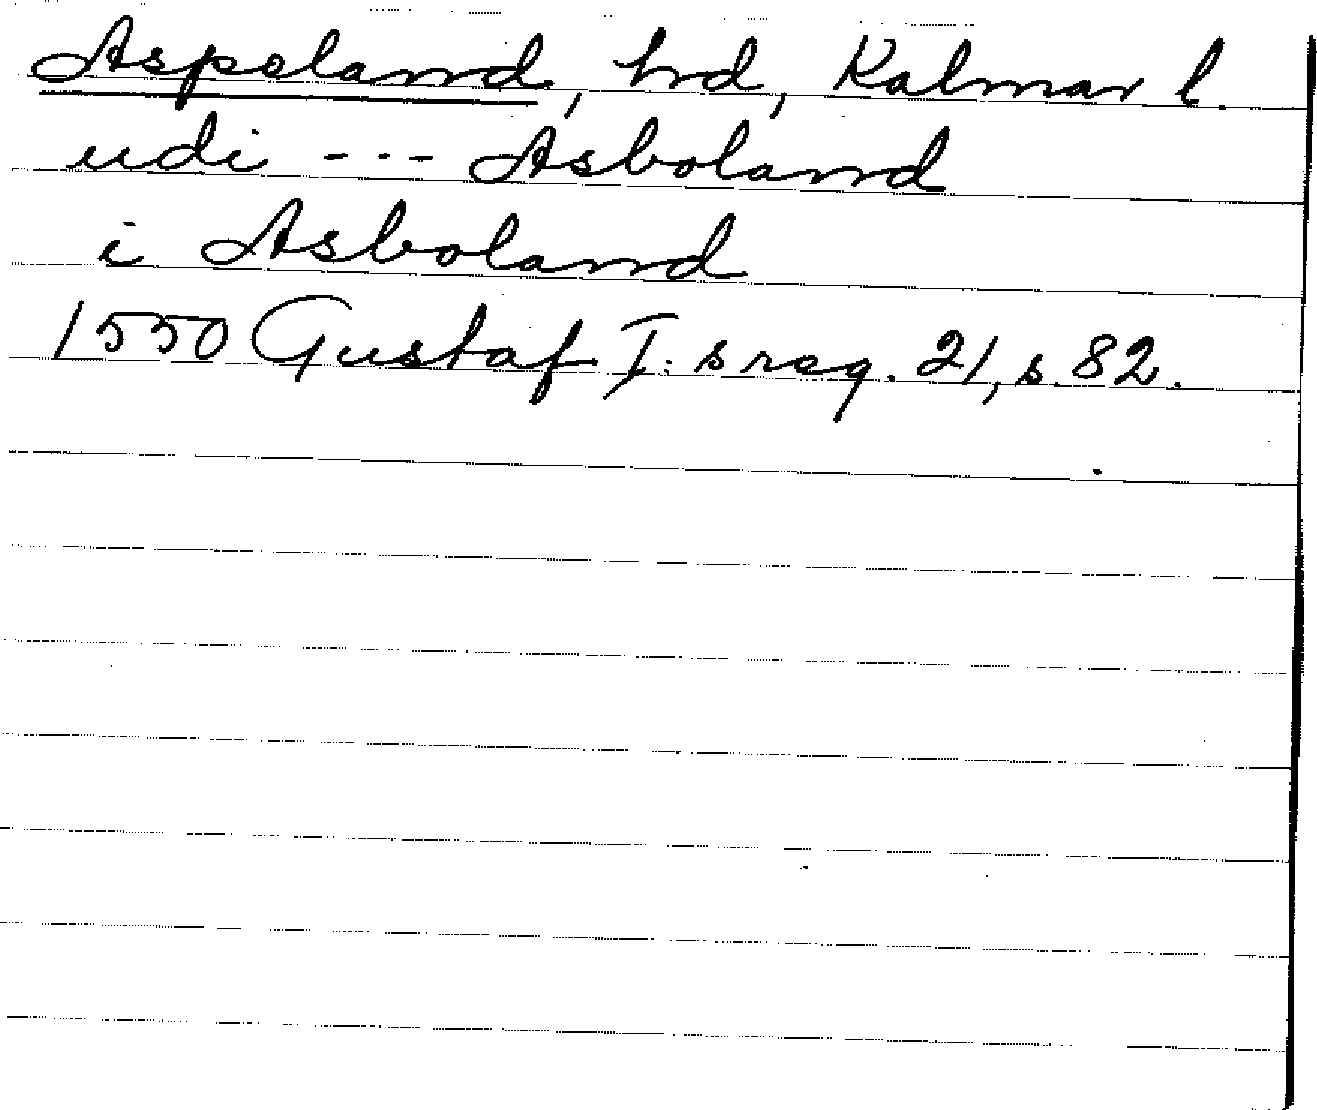 Aspeland, hrd, Kalmar l.
udi --- Asboland
i Asboland
1550 Gustaf I:s reg. 21, s. 82.